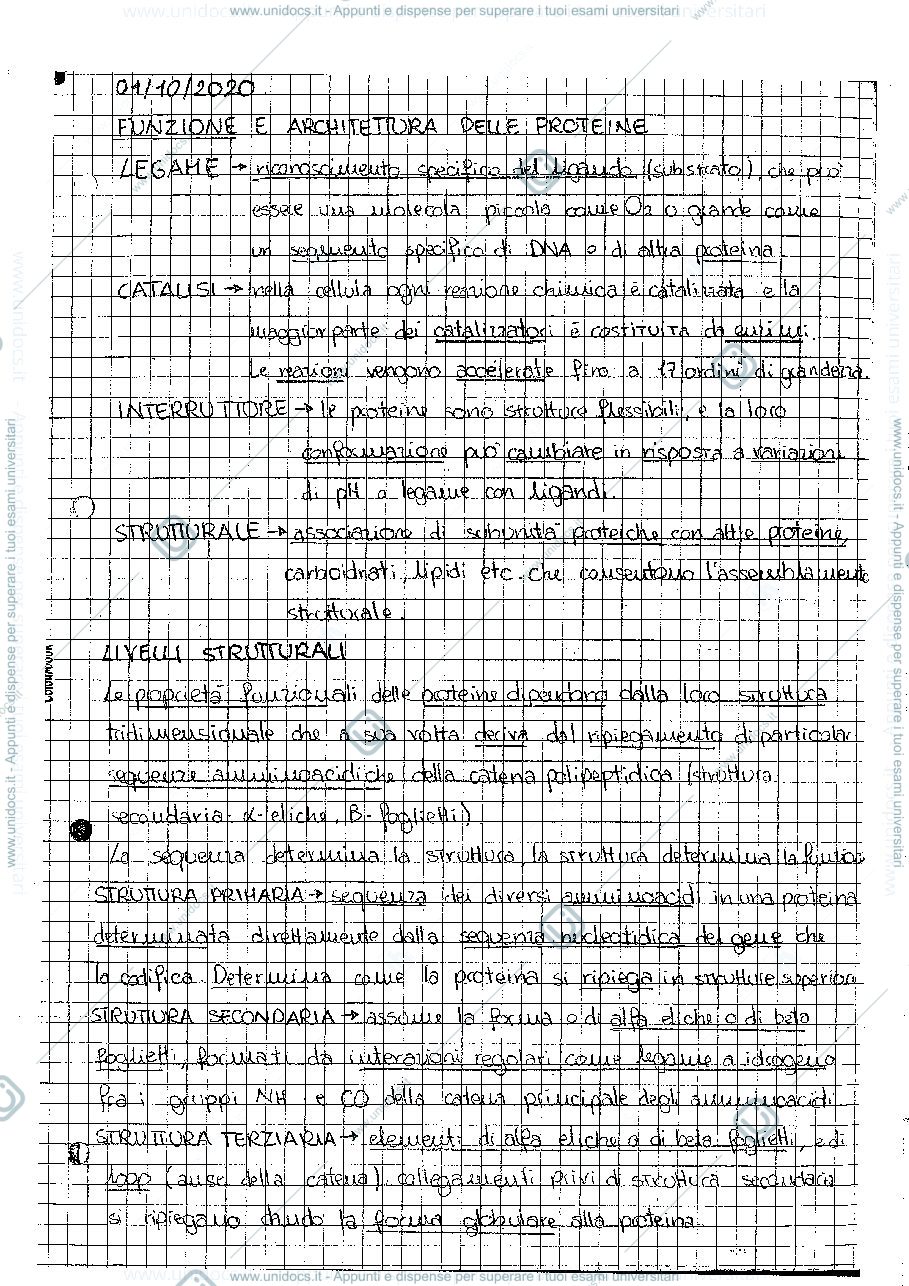 www.unidocs.it - Appunti e dispense per superare i tuoi esami universitari
01/10/2020
FUNZIONE E ARCHITETTURA DELLE PROTEINE
LEGAME → riconoscimento specifico del ligando (substrato), che può
essere una molecola piccola come O2 o grande come
un segmento specifico di DNA o di altra proteina.
CATALISI → nella cellula ogni reazione chimica è catalizzata e la
maggior parte dei catalizzatori è costituita da enzimi.
Le reazioni vengono accelerate fino a 17 ordini di grandezza.
INTERRUTTORE → le proteine sono strutture flessibili, e la loro
conformazione può cambiare in risposta a variazioni
di pH o legame con ligandi.
STRUTTURALE → associazione di subunità proteiche con altre proteine,
carboidrati, lipidi etc. che consentono l'assemblamento
strutturale.
LIVELLI STRUTTURALI
Le proprietà funzionali delle proteine dipendono dalla loro struttura
tridimensionale che a sua volta deriva dal ripiegamento di particolari
sequenze amminoacidiche della catena polipeptidica (struttura
secondaria: α-eliche, B-foglietti).
La sequenza determina la struttura, la struttura determina la funzione
STRUTTURA PRIMARIA → sequenza dei diversi amminoacidi in una proteina
determinata direttamente dalla sequenza nucleotidica del gene che
la codifica. Determina come la proteina si ripiega in strutture superiori
STRUTTURA SECONDARIA → assume la forma o di alfa eliche o di beta
foglietti, formati da interazioni regolari come legame a idrogeno
fra i gruppi NH e CO della catena principale degli amminoacidi.
STRUTTURA TERZIARIA → elementi di alfa eliche o di beta foglietti, e di
loop (anse della catena) collegamenti privi di struttura secondaria
si ripiegano dando la forma globulare alla proteina.
www.unidocs.it - Appunti e dispense per superare i tuoi esami universitari
www.unidocs.it - Appunti e dispense per superare i tuoi esami universitari
www.unidocs.it - Appunti e dispense per superare i tuoi esami universitari